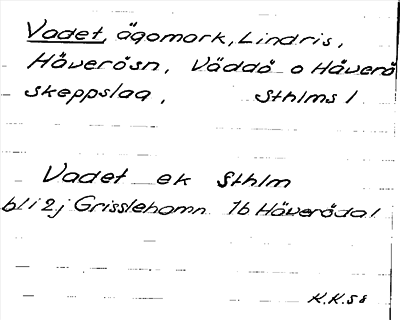 Vadet, ägomark, Lindris,
Häverösn, Väddö o Häverö
skeppslag, Sthlms l
Vadet ek Sthlm
bl i 2 j Grisslehamn 1b Häverödal
K.K.58